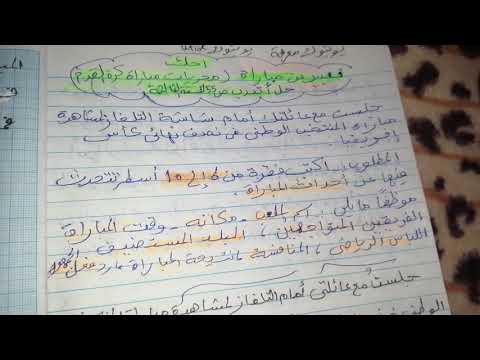 أحك
تعبير عن مباراة / مجريات مباراة كرة القدم
حل أتدرب ص 55 للسنة الثالثة
جلست مع عائلتك أمام شاشة التلفاز لمشاهدة
مباراة المنتخب الوطني في نصف نهائي كأس
إفريقيا.
المطلوب: اكتب فقرة من 6 إلى 10 أسطر تتحدث
فيها عن أحداث المباراة.
موظفا مايلي: اسم الملعب - مكانه - وقت المباراة
الفريقين المتواجهين، البلد المستضيف،
اللباس الرياضي، المنافسة، نتيجة المباراة، رد فعل
جلست مع عائلتي أمام التلفاز لمشاهدة